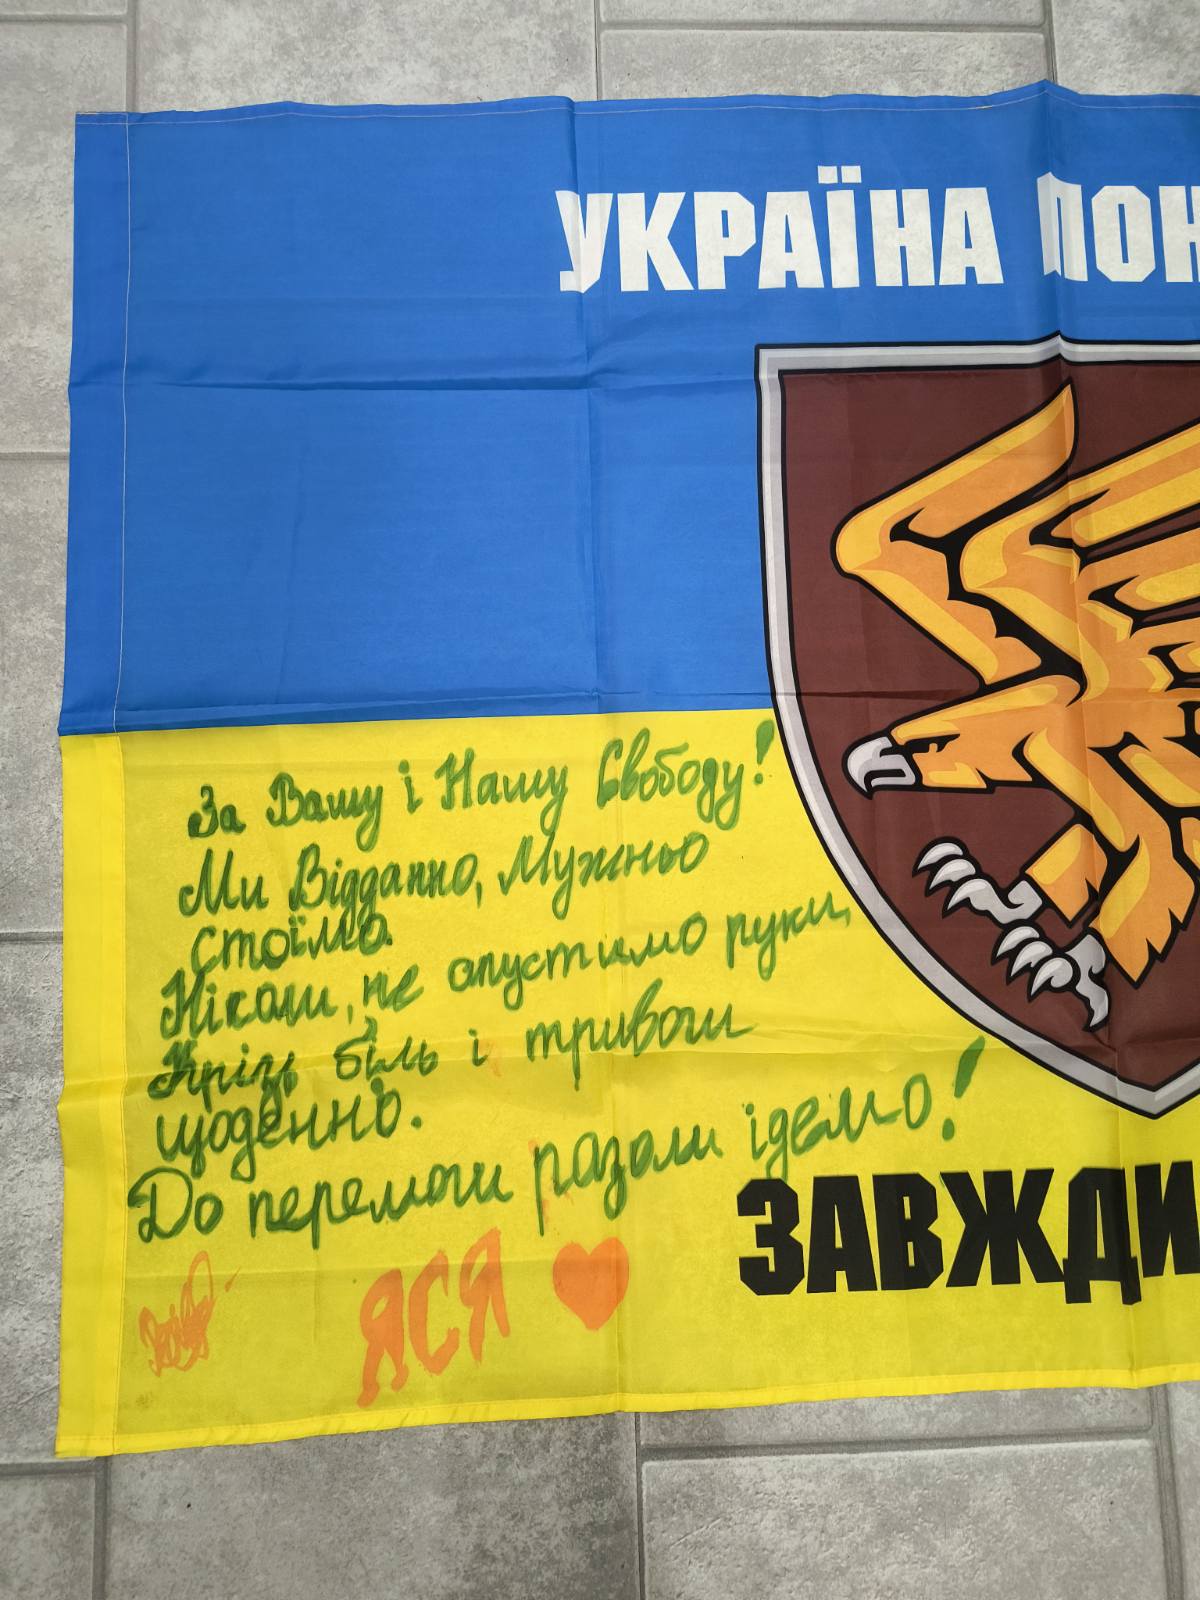 УКРАЇНА ПОН
За Вашу і Нашу Свободу!
Ми Віддапно, Мужньо
стоїмо.
Ніколи, не опустимо руки,
Крізь біль і тривоги
щоденно.
До перемоги разом ідемо!
ЗАВЖДИ
ЯСЯ